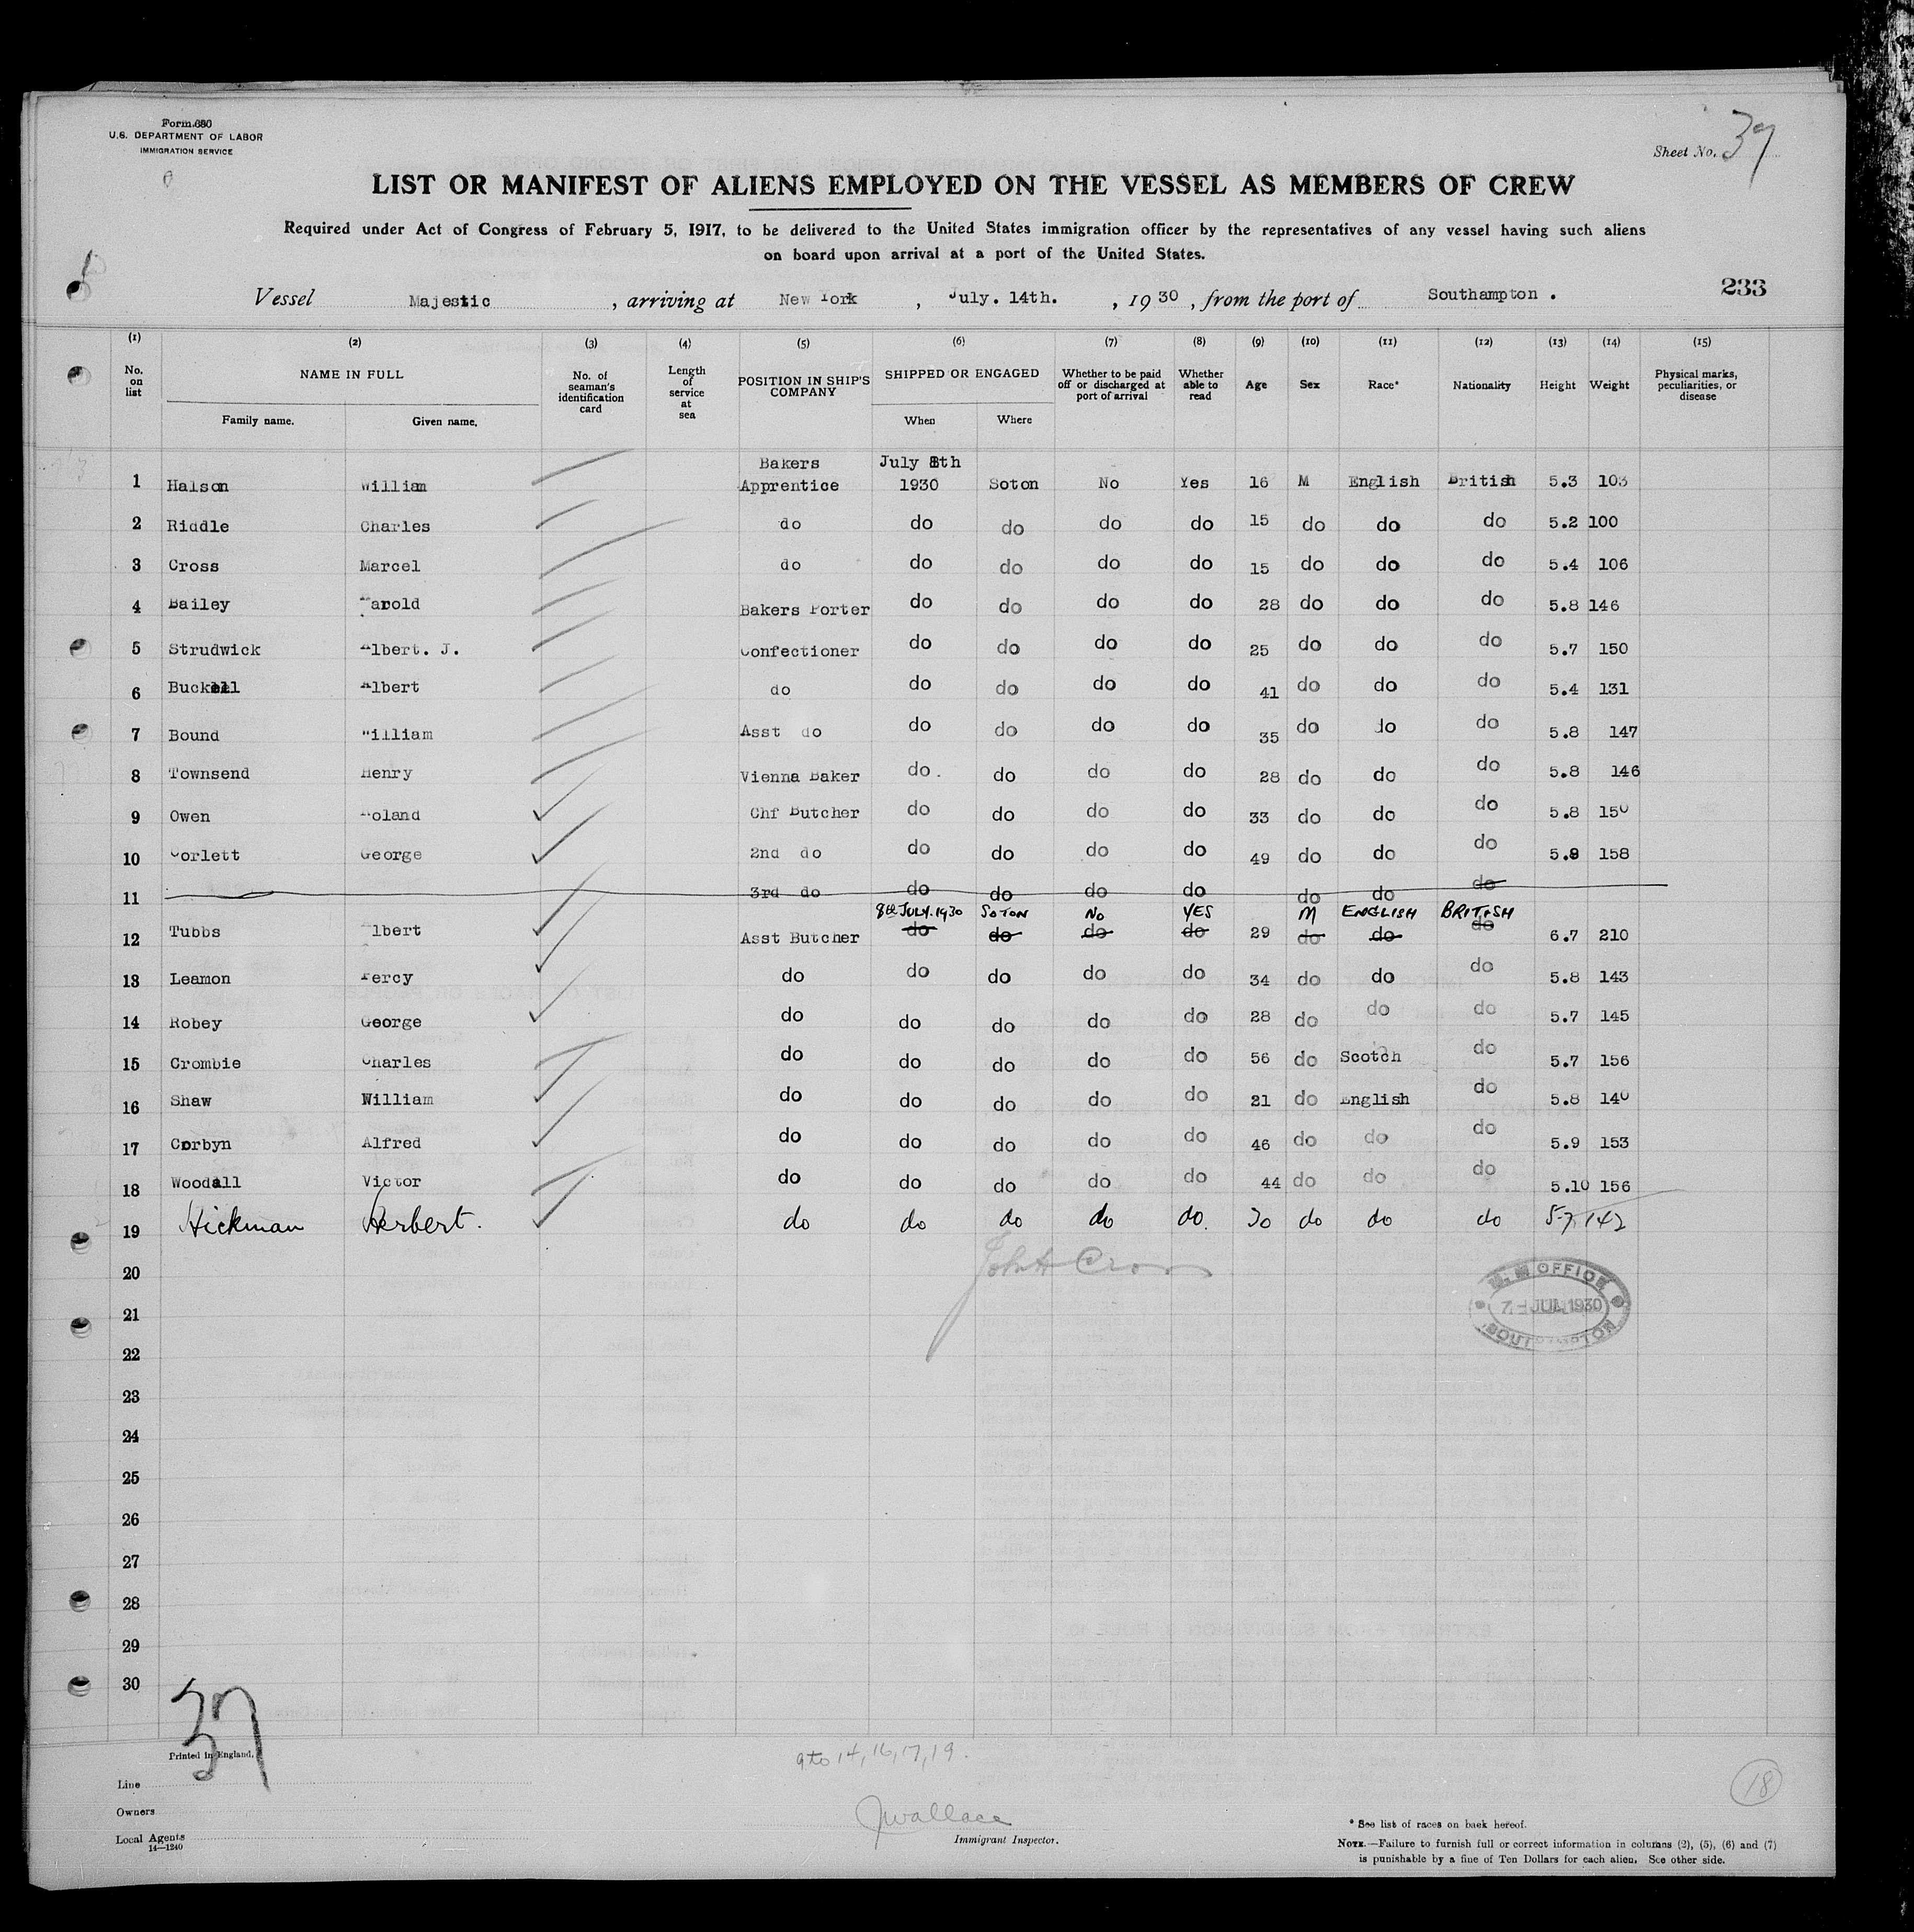 Form 680
U.S. DEPARTMENT OF LABOR
IMMIGRATION SERVICE
Sheet No. 37
LIST OR MANIFEST OF ALIENS EMPLOYED ON THE VESSEL AS MEMBERS OF CREW
Required under Act of Congress of February 5, 1917, to be delivered to the United States immigration officer by the representatives of any vessel having such aliens
on board upon arrival at a port of the United States.
Vessel Majestic , arriving at New York , July. 14th. , 1930 , from the port of Southampton .
233
(1) (2) (3) (4) (5) (6) (7) (8) (9) (10) (11) (12) (13) (14) (15)
No. on list NAME IN FULL Family name. Given name. No. of seaman's identification card Length of service at sea POSITION IN SHIP'S COMPANY SHIPPED OR ENGAGED When Where Whether to be paid off or discharged at port of arrival Whether able to read Age Sex Race* Nationality Height Weight Physical marks, peculiarities, or disease
Bakers July 8th
1 Halson William Apprentice 1930 Soton No Yes 16 M English British 5.3 103
2 Riddle Charles do do do do do 15 do do do 5.2 100
3 Cross Marcel do do do do do 15 do do do 5.4 106
4 Bailey Harold Bakers Porter do do do do 28 do do do 5.8 146
5 Strudwick Albert. J. Confectioner do do do do 25 do do do 5.7 150
6 Buckell Albert do do do do do 41 do do do 5.4 131
7 Bound William Asst do do do do do 35 do do do 5.8 147
8 Townsend Henry Vienna Baker do . do do do 28 do do do 5.8 146
9 Owen Roland Chf Butcher do do do do 33 do do do 5.8 150
10 Corlett George 2nd do do do do do 49 do do do 5.8 158
11 3rd do do do do do do do do
8th JULY. 1930 SOTON NO YES M ENGLISH BRITISH
12 Tubbs Albert Asst Butcher do do do do 29 do do do 6.7 210
13 Leamon Percy do do do do do 34 do do do 5.8 143
14 Robey George do do do do do 28 do do do 5.7 145
15 Crombie Charles do do do do do 56 do Scotch do 5.7 156
16 Shaw William do do do do do 21 do English do 5.8 140
17 Corbyn Alfred do do do do do 46 do do do 5.9 153
18 Woodall Victor do do do do do 44 do do do 5.10 156
19 Hickman Herbert. do do do do do. 30 do do do 5.7 142
20
John H Cross
21
OFFICE
7 - JUL 1930
SOUTHAMPTON
22
23
24
25
26
27
28
29
30
37
Printed in England.
9 to 14, 16, 17, 19.
Line
18
Owners
J Wallace
Local Agents
14—1240
Immigrant Inspector.
* See list of races on back hereof.
NOTE.—Failure to furnish full or correct information in columns (2), (5), (6) and (7)
is punishable by a fine of Ten Dollars for each alien. See other side.